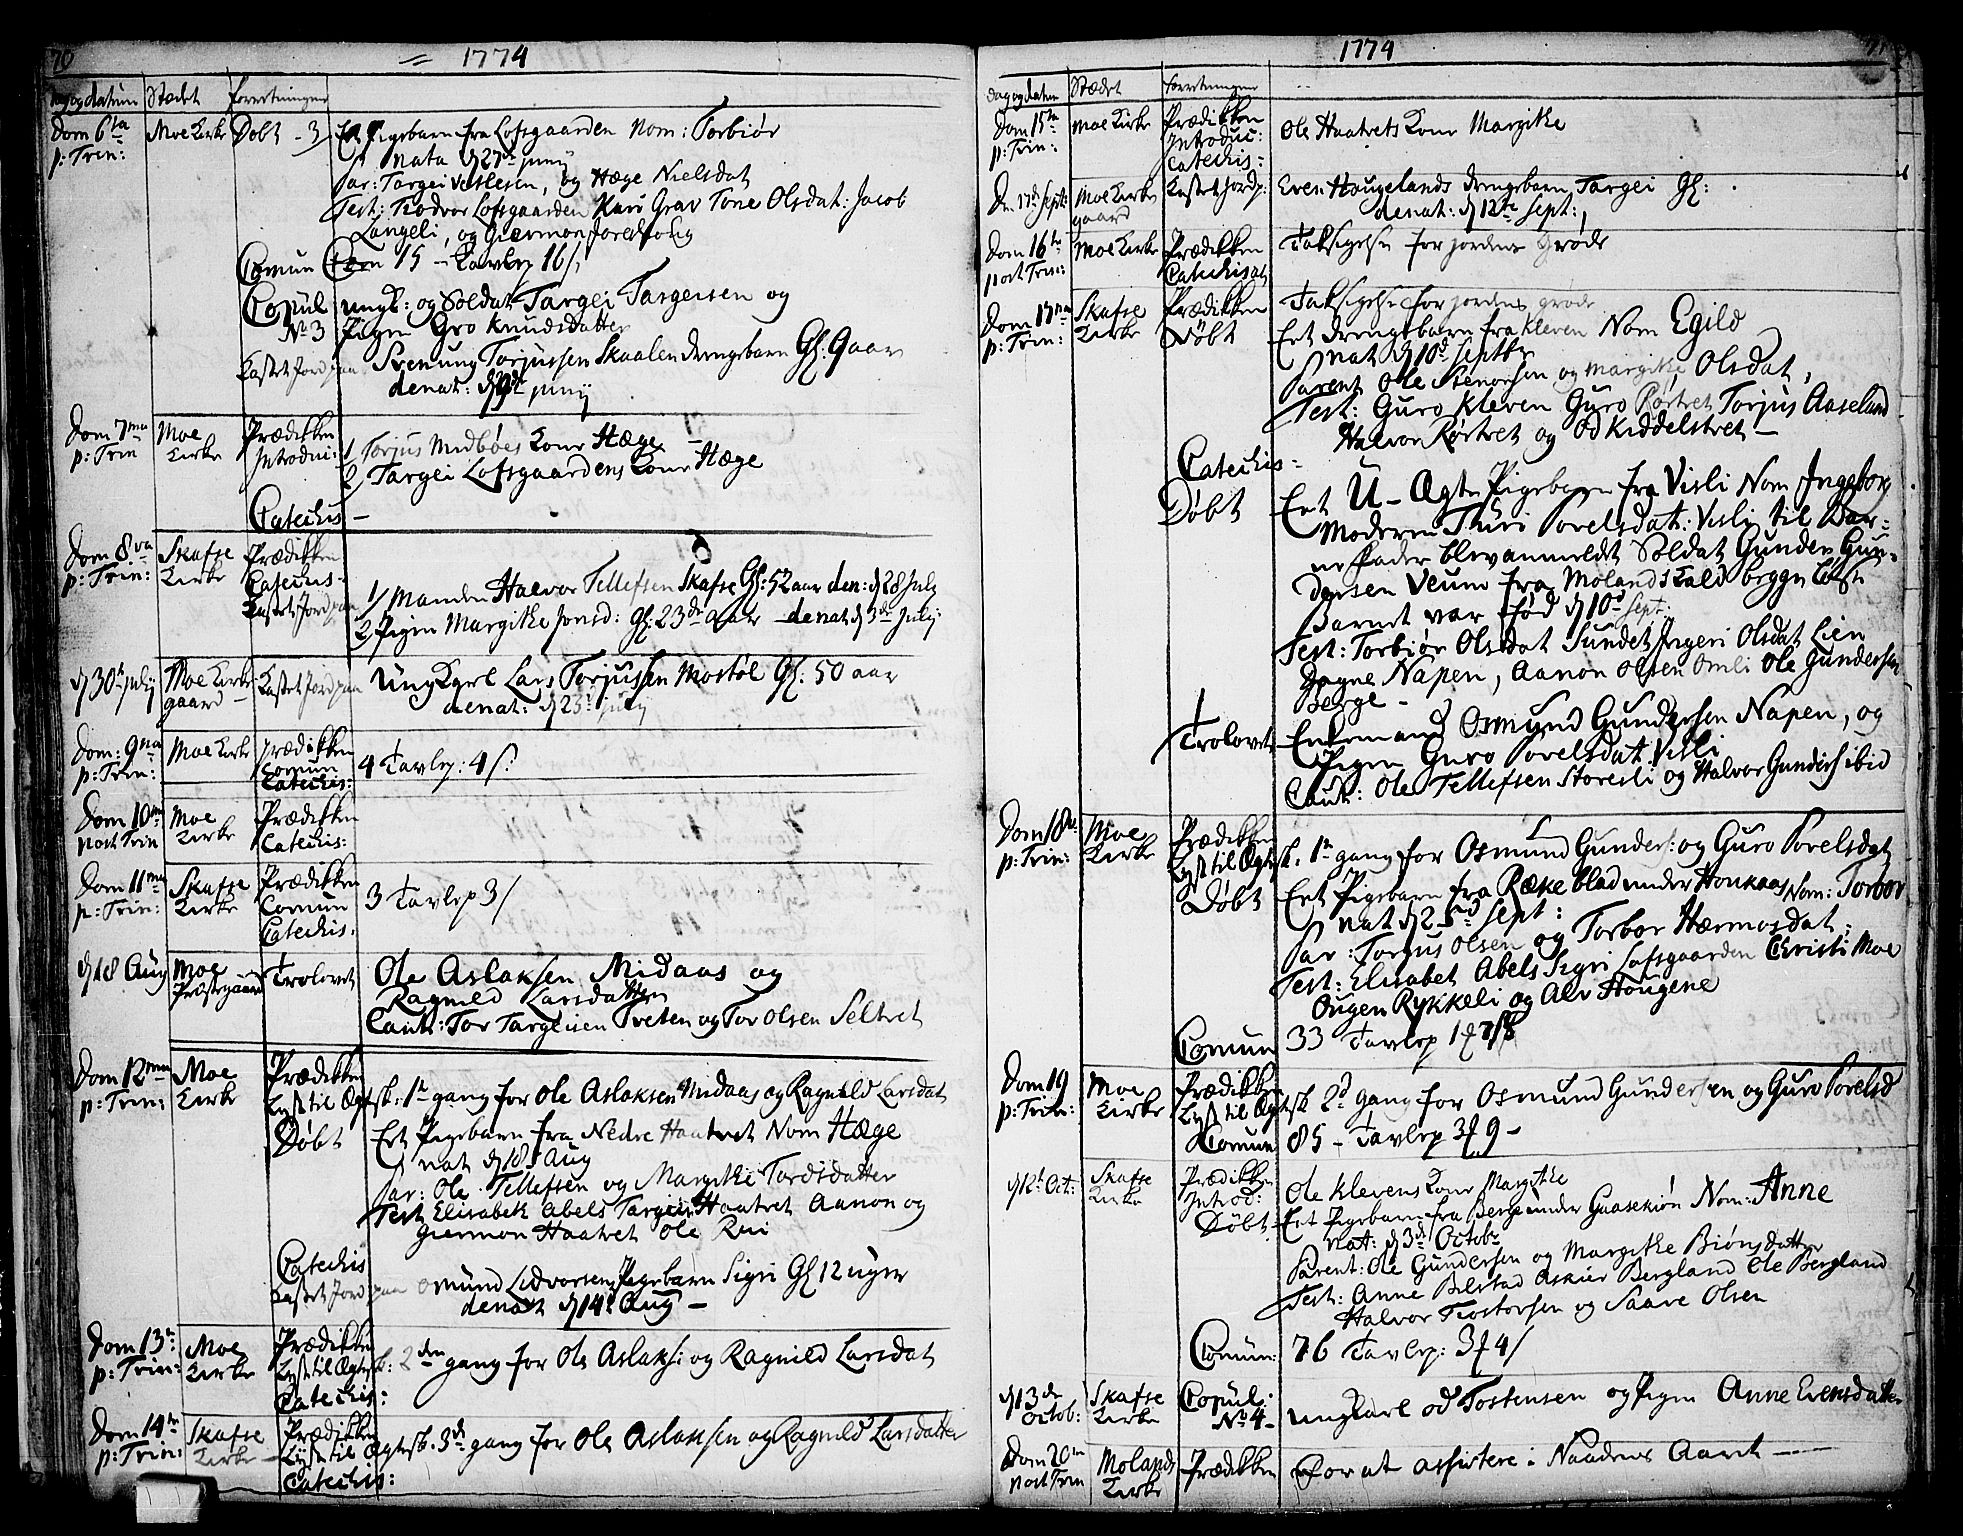 70
1774
Dag og datum Stædet forretninger
Dom 6ta p: Trin: Moe Kirke Døbt - 3, Et Pigebarn fra Lofsgaarden Nom: Torbiør
nata d 27de junij
Par: Targei Vetlesen, og Hæge Nielsdat
Test: Trodvor Lofsgaarden Kari Grav Tone Olsdat: Jacob
Langeli, og Giermon
Comun 15 - Tavlep 16 s
Copul No 3 ungk: og Soldat Targei Targeisen og
Pigen Gro Knudsdatter
Kastet Jord paa Svenung Torjussen Skaalen drengebarn Gl: 9 aar
denat: d 9de junij
Dom 7ma p: Trin Moe Kirke Prædikken
Introduc: 1 Torjus Midbøes Kone Hæge -
2 Targei Lofsgaardens Kone Hæge
Catechis -
Dom 8va p: Trin: Skafse Kirke Prædikken
Catechis -
Kastet Jord paa 1/ Manden Halvor Tellefsen Skafse Gl: 52 aar den: d 28 july
2 Pigen Margithe Jonsd: Gl: 23de aar - denat d 3de July
d 30te july Moe Kirke gaard - Kastet Jord paa Ung Karl Lars Torjussen Mostøl Gl: 50 aar
denat: d 23de july
Dom: 9na p: Trin: Moe Kirke Prædikken
Comun 4 Tavlep: 4 s:
Catechis:
Dom 10ma post Trin Moe Kirke Prædikken
Catechis:
Dom 11ma p: Trin: Skafse Kirke Prædikken
Comun 3 Tavlep 3/
Catechis.
d 18 Aug Moe Præstegaard Trolovet Ole Aslaksen Midaas og
Ragnild Larsdatter
Caut: Tor Targeisen Treten og Tor Olsen Seltret
Dom 12ma p: Trin: Moe Kirke Prædikken
Lyst til Ægtesk. 1te gang for Ole Aslaksen Midaas og Ragnild Larsdat
Døbt Et Pigebarn fra Nedre Haatvet Nom Hæge
nat d 18 Aug
Par: Ole Tellefsen og Margithe Tordsdatter
Test Elisabeth Abels Targeri Haatvet Aanon og
Giermon Haatvet Ole Rui
Catechis
Kastet Jord paa Omund Lidvorsens Pigebarn Sigri Gl 12 uger
denat d 14t Aug -
Dom 13te p: Trin: Moe Kirke Prædikken
Lyst til Ægtesk: 2den gang for Ole Aslaks: og Ragnild Larsdat
Catechis:
Dom 14te p: Trin: Skafse Kirke - Prædikken
Lyst til Ægtesk. 3de gang for Ole Aslaksen og Ragnild Larsdatter
Catechis:
1774
71
Dag og datum Stædet forretninger
Dom 15te p: Trin: Moe Kirke Prædikken
Introduc: Ole Haatvets Kone Margithe
Catechis:
Den 17de Sept: Moe Kirke gaard Kastet Jord p: Even Hougelands drengebarn Targei Gl:
denat: d 12te Sept:
Dom 16te post Trin: Moe Kirke Prædikken Taksigelse for jordens Grøde
Catechisat
Dom 17ma p: Trin: Skafse Kirke Prædikken Taksigelse for jordens grøde
Døbt Et drengebarn fra Kleven Nom Egild
nat d 10de Septbr
Parent Ole Stenorsen og Margithe Olsdat,
Test: Guro Kleven Guro Rørtvet Torjus Aaselund
Halvor Rørtvet og Od Kiddelstvet -
Catechis -
Døbt Et U-Ægte Pigebarn fra Visli Nom Ingebor
Moderen Thuri Povelsdat: Visli til Bar-
ne fader blev anmeldet Soldat Gunder Gun-
dersen Veum fra Molands Kald begge løse
Barnet var født d 10d Sept:
Test: Torbiør Olsdat Sundet Ingeri Olsdat Lien
Dagne Napen, Aanon Olsen Omli Ole Gundersen
Berge -
Trolovet - Enkemand Osmund Gundersen Napen, og
Pigen Guro Povelsdat Visli
Caut: Ole Tellefsen Storesli og Halvor Gunders ibid
Dom 18te p: Trin: Moe Kirke Prædikken
Lyst til Ægtesk. 1te gang for Osmund Gunders: og Guro Povelsdat
Døbt Et Pigebarn fra Ræke blad under Houkaas Nom: Torbor
nat d 25 Sept:
Par: Torjus Olsen og Torbor Hærmosdat:
Test: Elisabet Abels Sigri Lofsgaarden Christi Moe
Ougen Rykkeli og Alv Hougene
Comun 33 Tavlep
Dom 19 p: Trin: Moe Kirke Prædikken
Lyst til Ægtesk 2d gang for Osmund Gundersen og Guro Povelsd
Comun 85 - Tavlep 3 f 9 -
d 12te Oct: Skafse Kirke Prædikken
Introd: Ole Klevens Kone Margithe
Døbt - Et Pigebarn fra Berge under Gaasekiøn Nom: Anne
nat: d 3de Octobr
Parent: Ole Gundersen og Margithe Biønsdatter
Test: Anne Belstad Askier Bergland Ole Bergland
Halvor Tostorsen og Saave Olsen
Comun: 76 Tavlep: 3 f 4/
d 13de Octob: Skafse Kirke Copul: No 4 - Ungkarl Od Tostensen og Pigen Anne Evensdatter
Dom 20m post Trin Molands Kirke Prædikken for at assistere i Naadens Aaret -